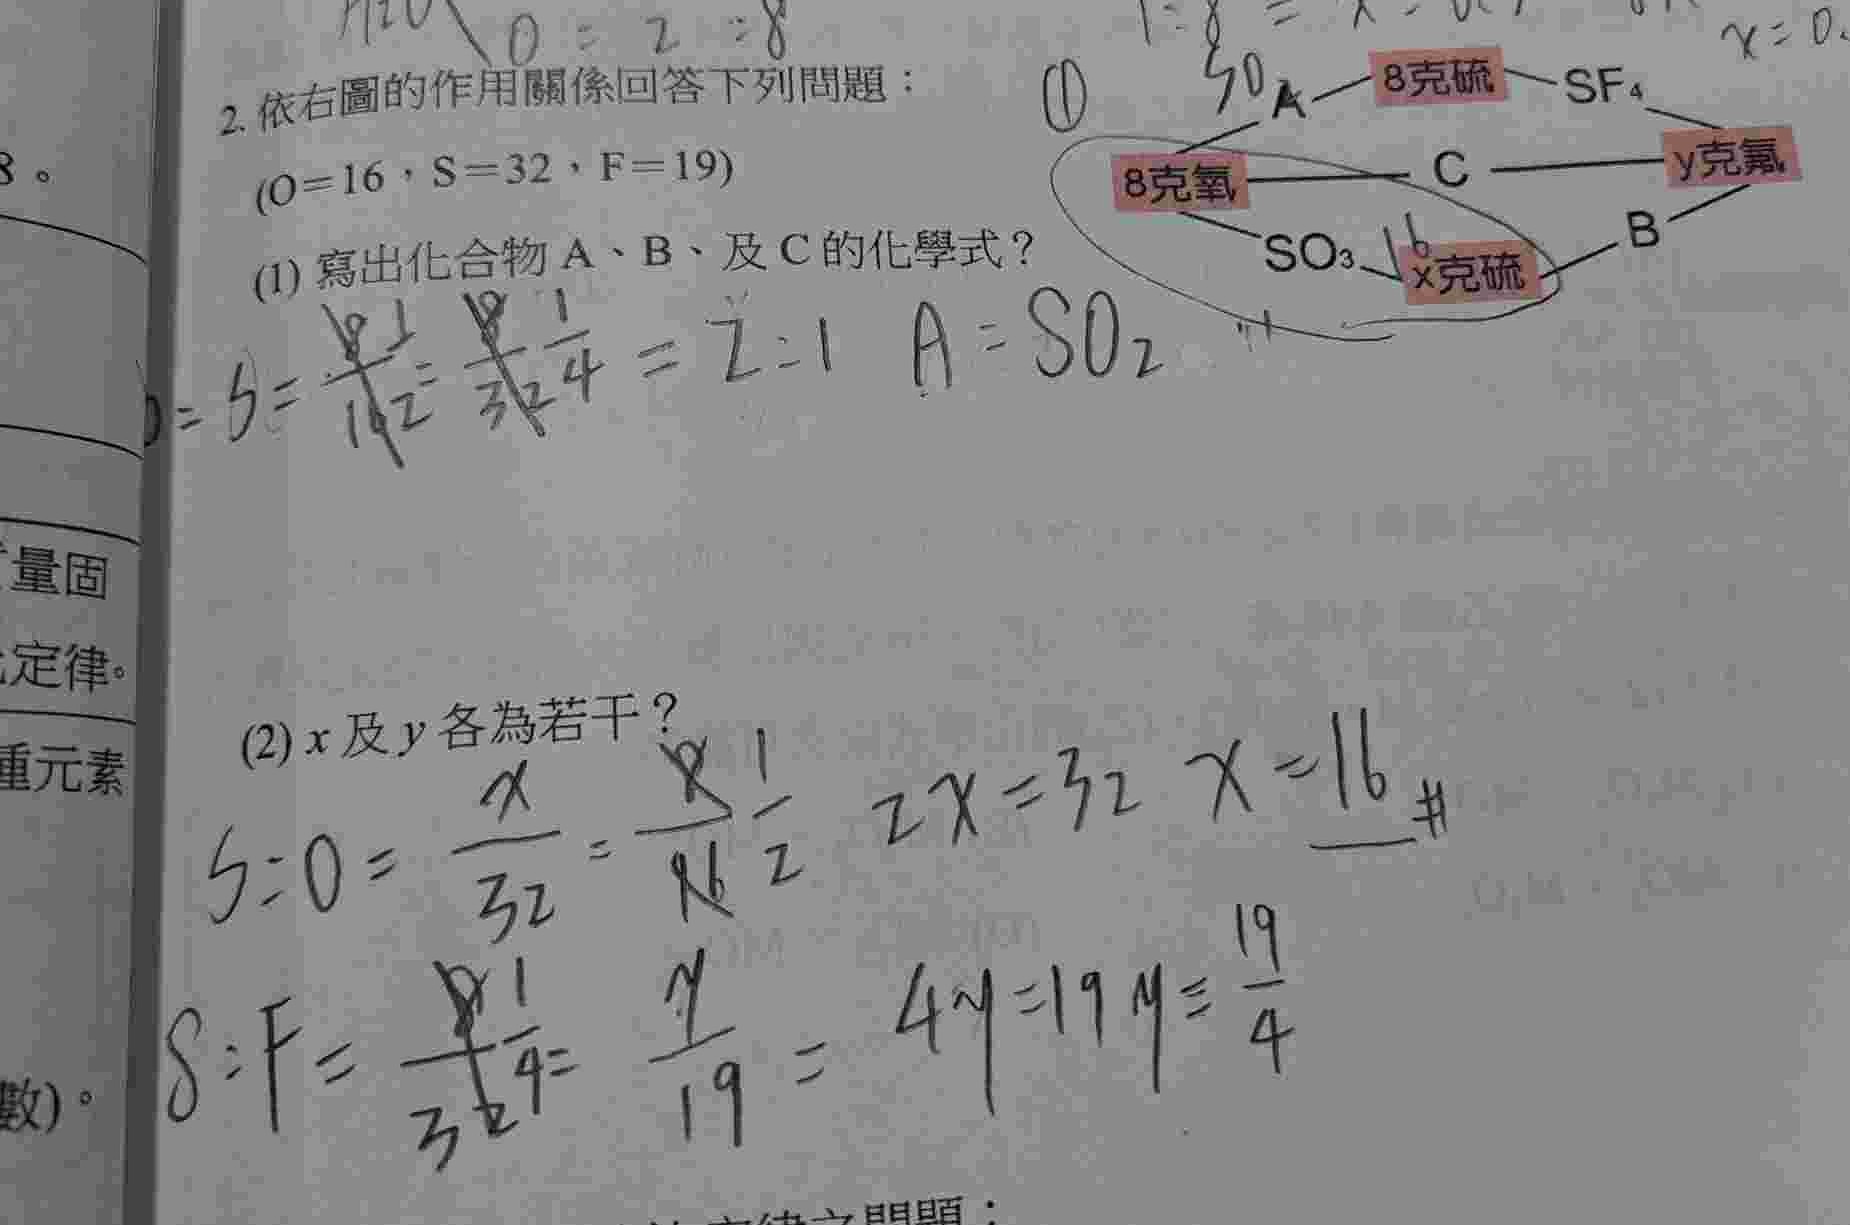 H2O
O = 2 = 8
x = 0.
2. 依右圖的作用關係回答下列問題：
(O＝16，S＝32，F＝19)
(1) 寫出化合物 A、B、及 C 的化學式？
①
SO
A
8克硫
SF₄
8克氧
C
y克氟
SO₃
16
x克硫
B
S = 8 1 / 16 2 = 8 / 32 1 / 4 = 2 : 1 A = SO2
(2) x 及 y 各為若干？
S : O = x / 32 = 8 / 16 1 / 2 2x = 32 x = 16 #
S : F = 8 / 32 1 / 4 = y / 19 = 4y = 19 y = 19 / 4
8。
量固
定律。
重元素
數)。